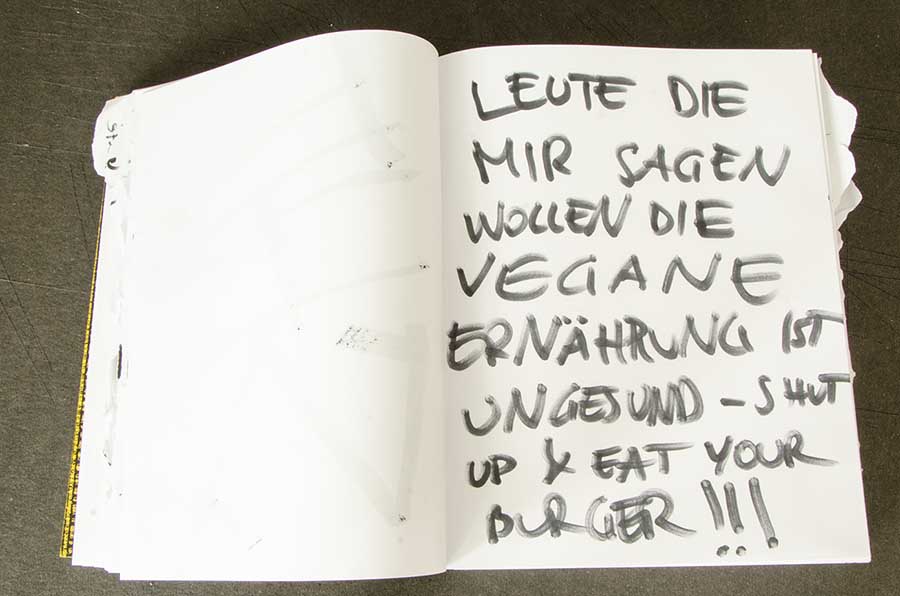 LEUTE DIE
MIR SAGEN
WOLLEN DIE
VEGANE
ERNÄHRUNG IST
UNGESUND – SHUT
UP & EAT YOUR
BURGER!!!